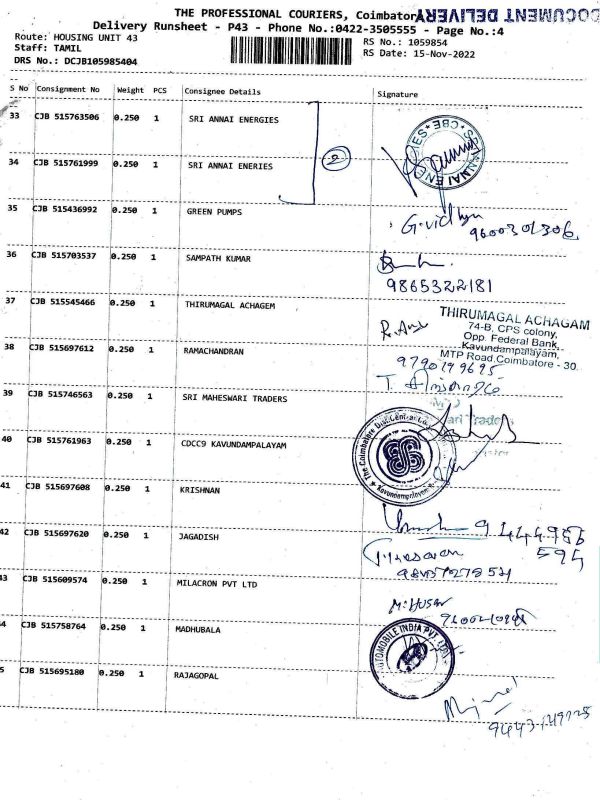 THE PROFESSIONAL COURIERS, Coimbatore
DOCUMENT DELIVERY
Delivery Runsheet - P43 - Phone No.:0422-3505555 - Page No.:4
Route: HOUSING UNIT 43
RS No.: 1059854
Staff: TAMIL
RS Date: 15-Nov-2022
DRS No.: DCJB105985404
S No Consignment No Weight PCS Consignee Details Signature
33 CJB 515763506 0.250 1 SRI ANNAI ENERGIES
2
34 CJB 515761999 0.250 1 SRI ANNAI ENERIES
35 CJB 515436992 0.250 1 GREEN PUMPS
G.vidhya
9600301306
36 CJB 515703537 0.250 1 SAMPATH KUMAR
9865322181
37 CJB 515545466 0.250 1 THIRUMAGAL ACHAGEM
THIRUMAGAL ACHAGAM
74-B, CPS colony,
Opp. Federal Bank,
Kavundampalayam,
MTP Road, Coimbatore - 30.
38 CJB 515697612 0.250 1 RAMACHANDRAN
9790199695
39 CJB 515746563 0.250 1 SRI MAHESWARI TRADERS
ari Traders
40 CJB 515761963 0.250 1 CDCC9 KAVUNDAMPALAYAM
The Coimbatore Dist. Central Co
Kavundampalayam
41 CJB 515697608 0.250 1 KRISHNAN
42 CJB 515697620 0.250 1 JAGADISH
594
43 CJB 515609574 0.250 1 MILACRON PVT LTD
44 CJB 515758764 0.250 1 MADHUBALA
AUTOMOBILE INDIA PVT. LTD
45 CJB 515695180 0.250 1 RAJAGOPAL